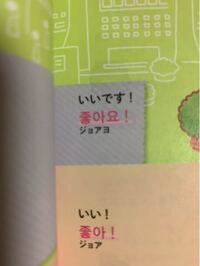 いいです！
좋아요！
ジョアヨ
いい！
좋아！
ジョア